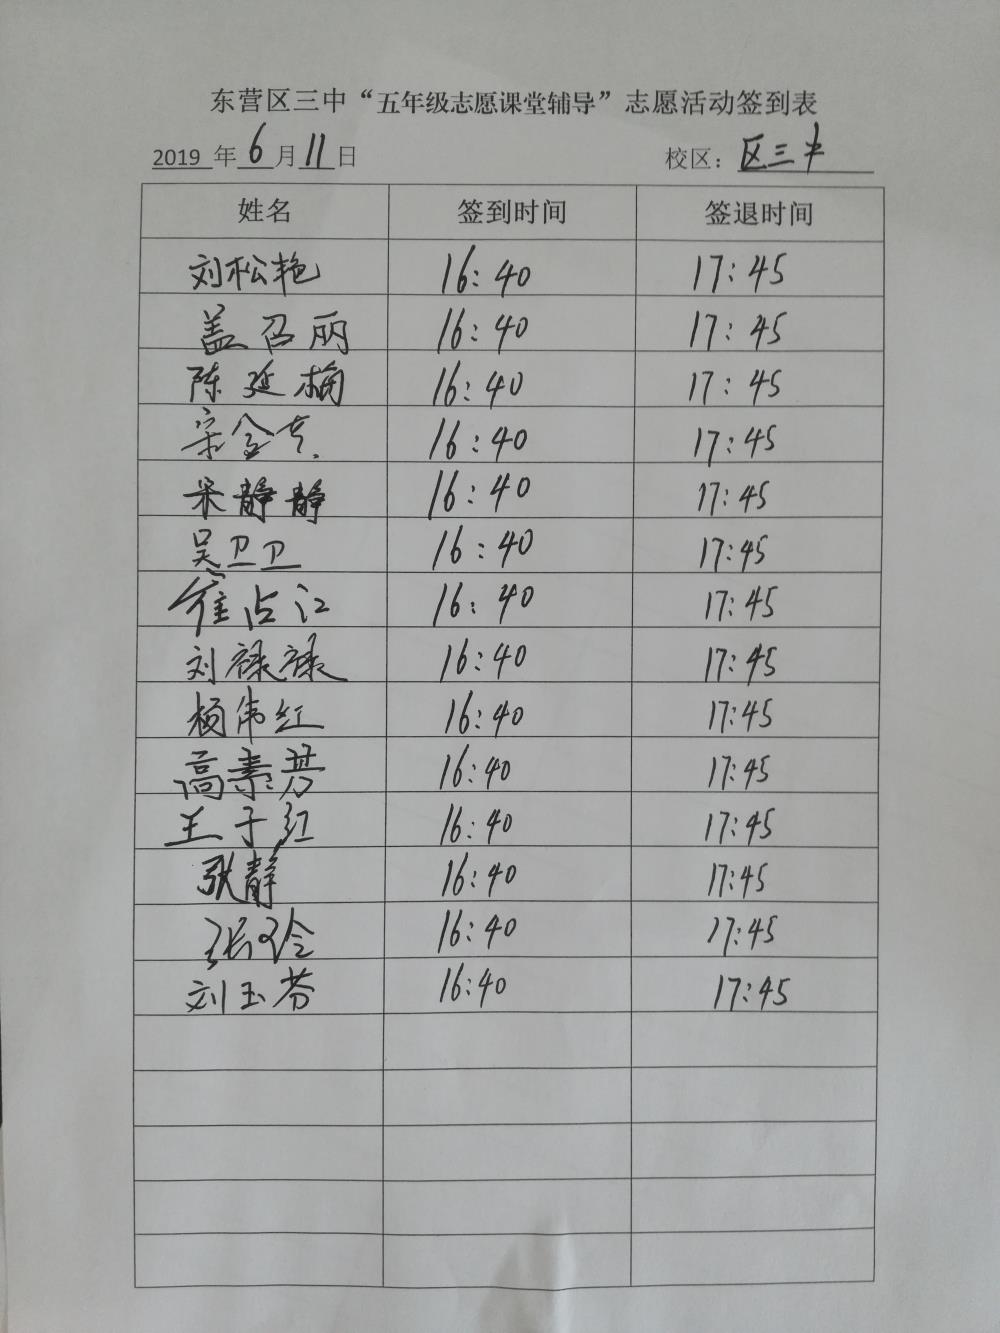 东营区三中“五年级志愿课堂辅导”志愿活动签到表
2019 年 6 月 11 日 校区：区三中
姓名 签到时间 签退时间
刘松艳 16:40 17:45
盖召丽 16:40 17:45
陈延梅 16:40 17:45
宋金 16:40 17:45
宋静静 16:40 17:45
吴卫卫 16:40 17:45
崔占江 16:40 17:45
刘禄禄 16:40 17:45
杨伟红 16:40 17:45
高素芳 16:40 17:45
王于红 16:40 17:45
张静 16:40 17:45
张玲 16:40 17:45
刘玉芬 16:40 17:45